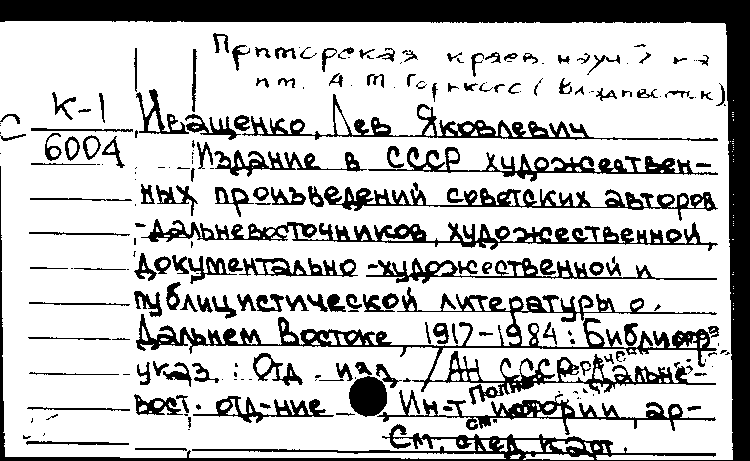 Приморская краев. науч. б-ка
им. А. М. Горького (Владивосток)
К-1
6004
С
Иващенко, Лев Яковлевич
Издание в СССР художествен-
ных произведений советских авторов
-дальневосточников, художественной,
документально-художественной и
публицистической литературы о
Дальнем Востоке, 1917-1984: Библиогр
указ. : Отд. изд. / АН СССР, Дальне-
вост. отд-ние, Ин-т истории, ар-
Полный перечень
см.
См. след. карт.